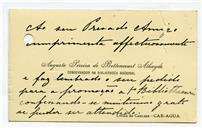 Ao seu Presado Amigo
cumprimenta affectuosamente
Augusto Pereira de Bettencourt Athayde
CONSERVADOR DA BIBLIOTHECA NACIONAL
e faz lembrado o seu pedido
para a promoção a 1º
confessando-se muitissimo grato
se puder ser attendido
CAB-AGUA